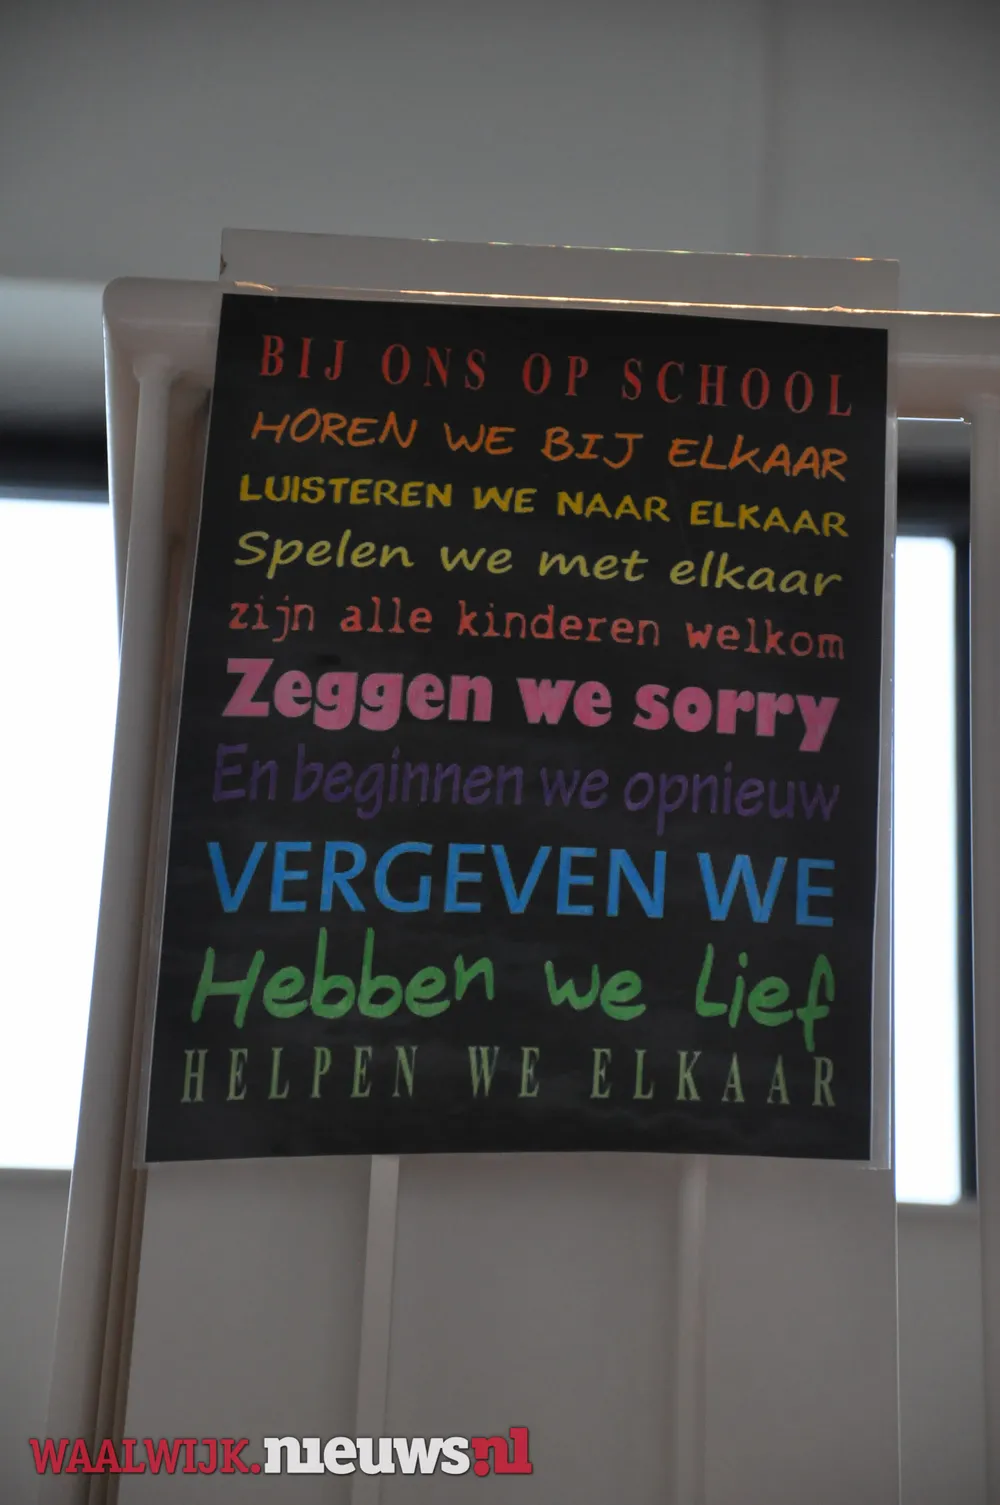 BIJ ONS OP SCHOOL
HOREN WE BIJ ELKAAR
LUISTEREN WE NAAR ELKAAR
Spelen we met elkaar
zijn alle kinderen welkom
Zeggen we sorry
En beginnen we opnieuw
VERGEVEN WE
Hebben we lief
HELPEN WE ELKAAR
WAALWIJK.nieuws.nl